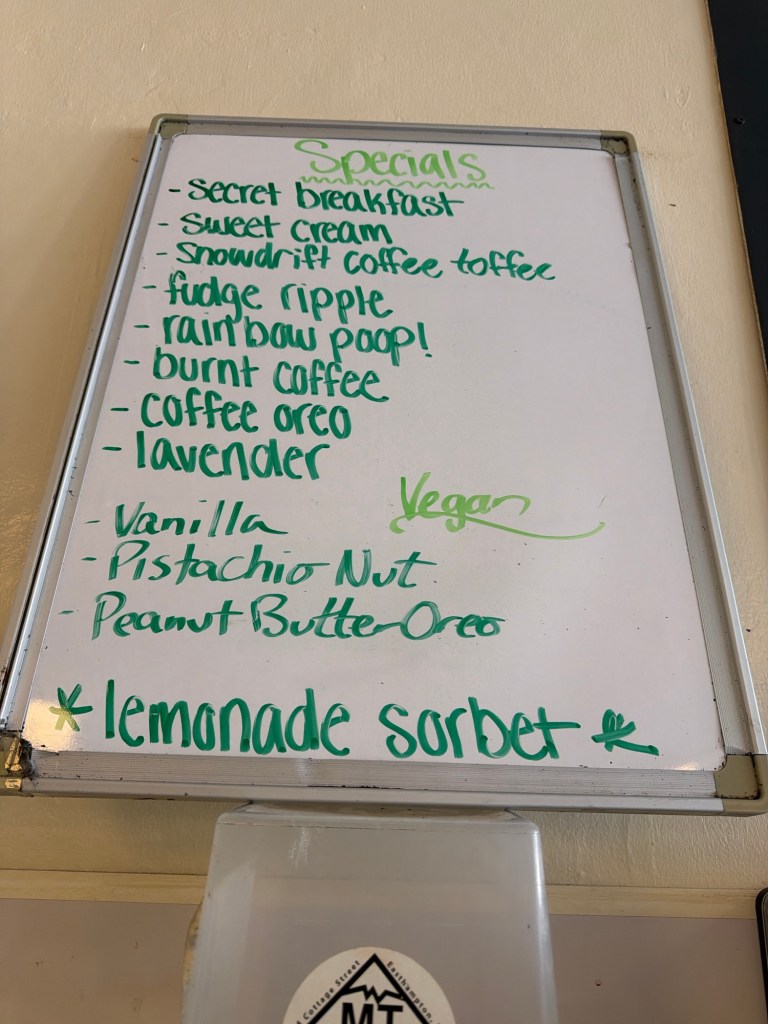 Specials
- Secret breakfast
- Sweet cream
- Snowdrift coffee toffee
- fudge ripple
- rainbow poop!
- burnt coffee
- coffee oreo
- lavender
Vegan
- Vanilla
- Pistachio Nut
- Peanut Butter Oreo
* lemonade sorbet *
Cottage Street
Easthampton,
MT